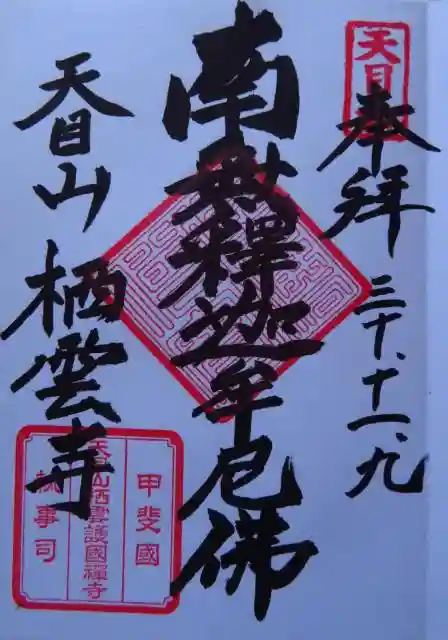 天目
奉拝
三十、十一、九
南無釋迦牟尼佛
天目山 栖雲寺
甲斐國
天目山栖雲護國禅寺
執事司